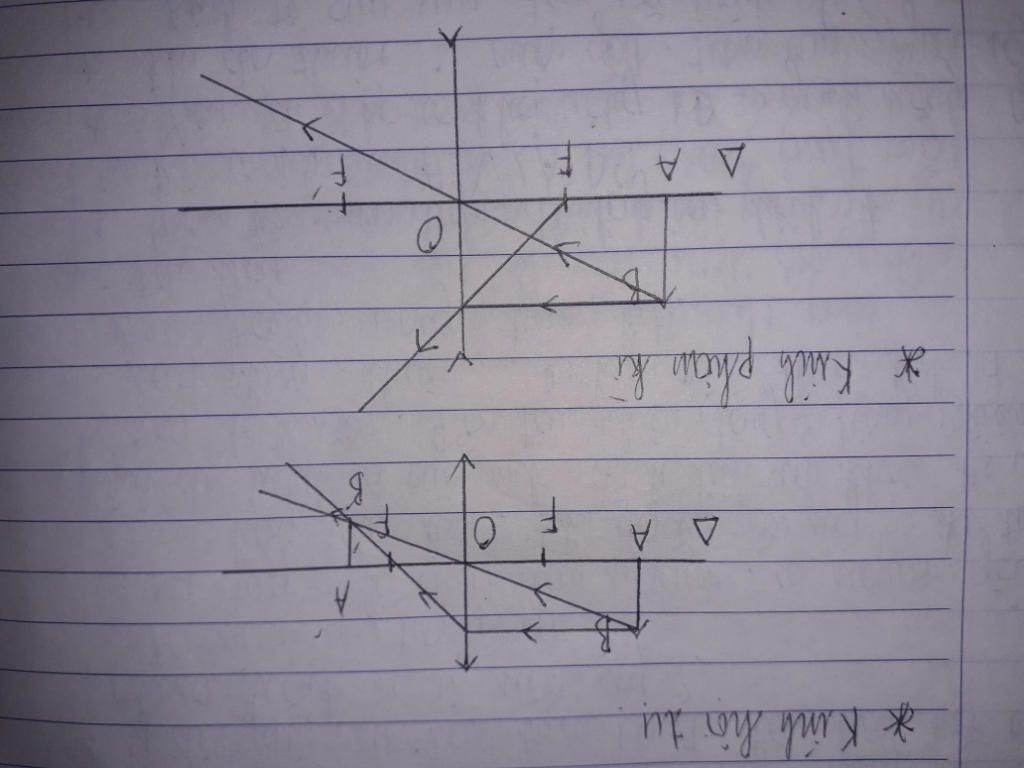 * Kính hội tụ
B
A'
Δ A F O F'
B'
* Kính phân kì
B
O
Δ A F F'